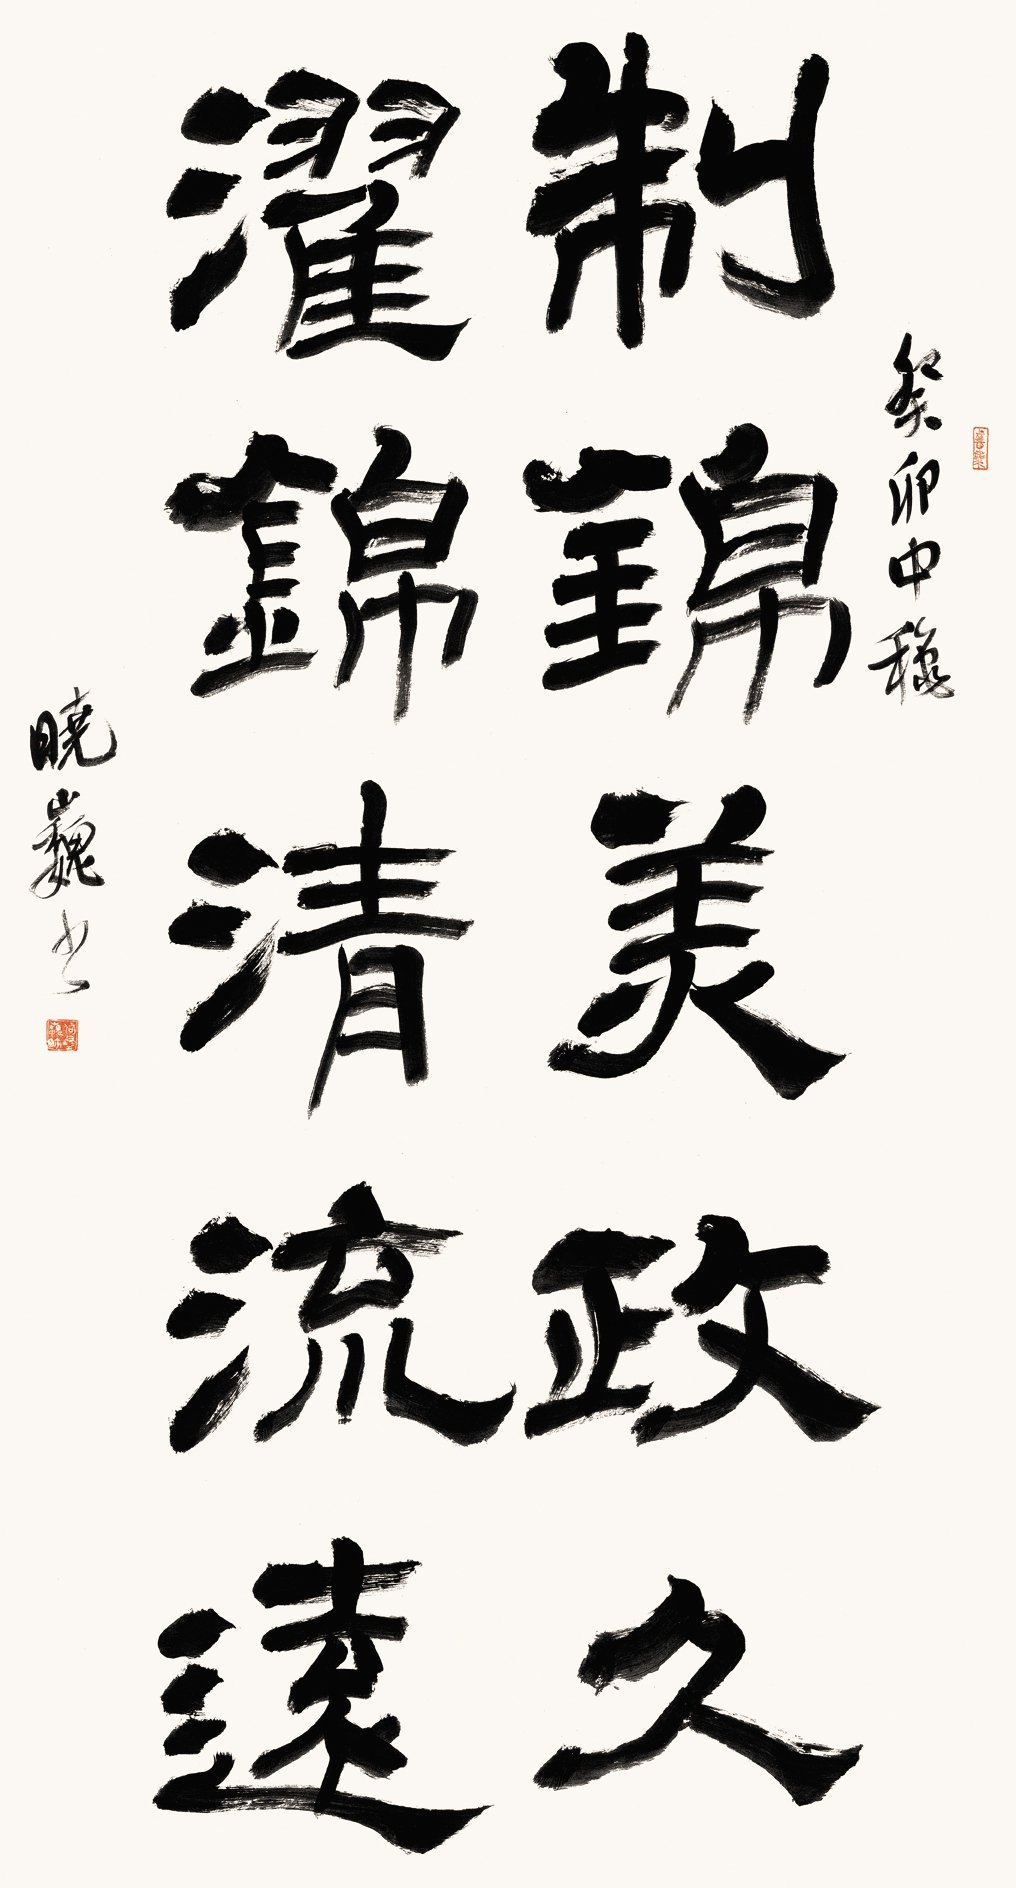 癸卯中穐
制錦美政久
濯錦清流遠
曉巍书